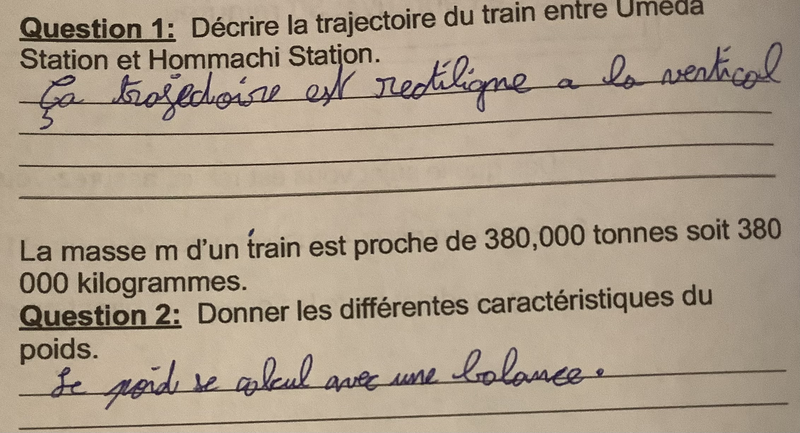 Question 1: Décrire la trajectoire du train entre Umeda
Station et Hommachi Station.
Ça trajedoire est rectiligne a la vertical
La masse m d'un train est proche de 380,000 tonnes soit 380
000 kilogrammes.
Question 2: Donner les différentes caractéristiques du
poids.
Le poid se calcul avec une balance.